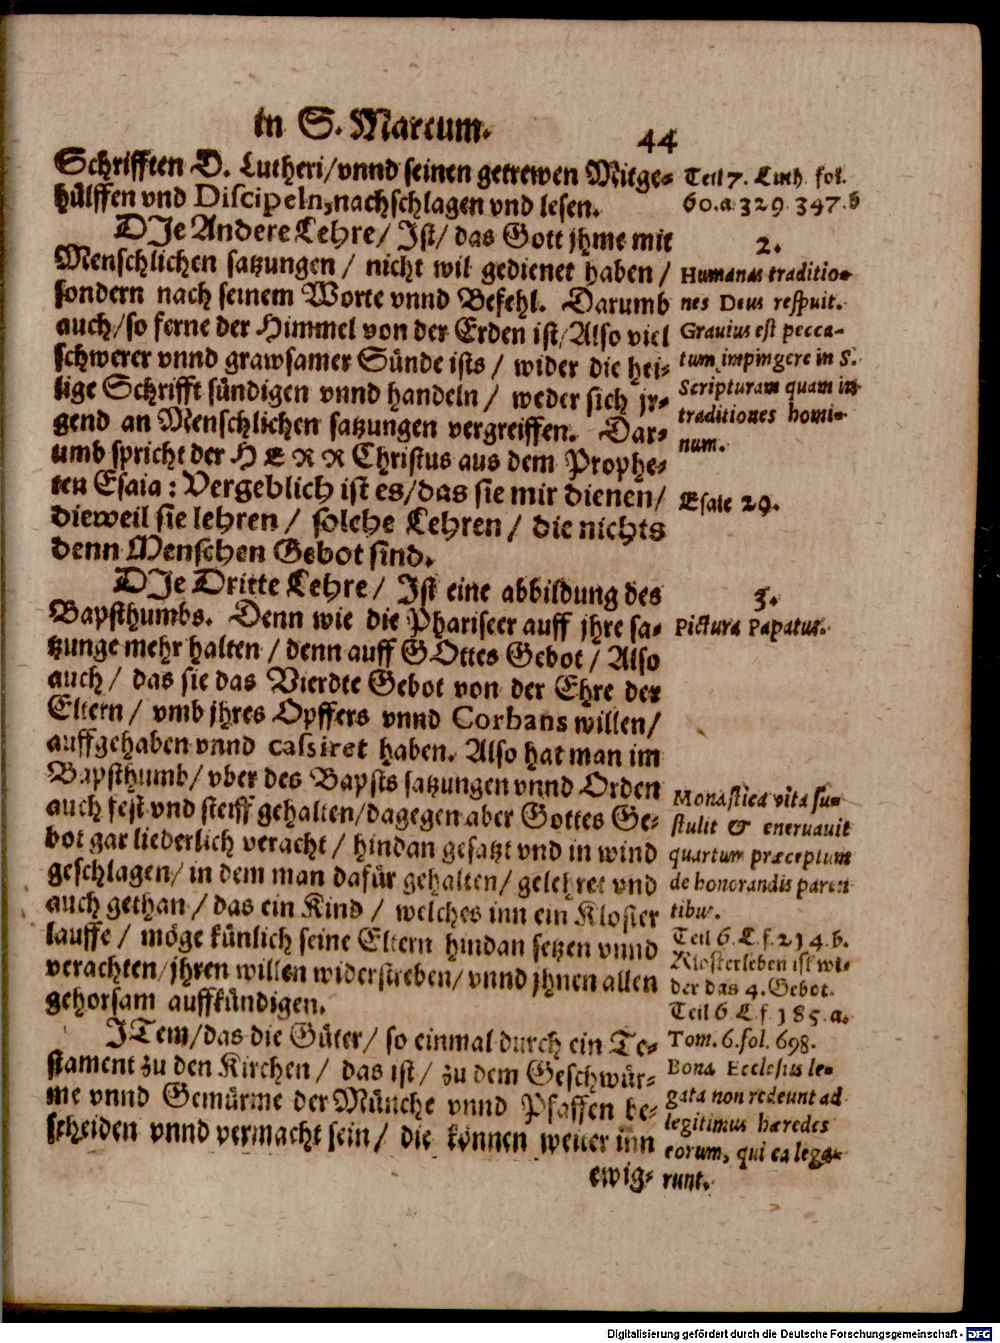 in S. Marcum.
44
Schrifften D. Lutheri/vnnd seinen getrewen Mitge-
hülffen vnd Discipeln, nachschlagen vnd lesen.
DJe Andere Lehre/ Jst/ das Gott jhme mit
Menschlichen satzungen / nicht wil gedienet haben /
sondern nach seinem Worte vnnd Befehl. Darumb
auch/so ferne der Himmel von der Erden ist/Also viel
schwerer vnnd grawsamer Sünde ists / wider die hei-
lige Schrifft sündigen vnnd handeln / weder sich jr-
gend an Menschlichen satzungen vergreiffen. Dar-
umb spricht der HERR Christus aus dem Prophe-
ten Esaia : Vergeblich ist es/das sie mir dienen/
dieweil sie lehren / solche Lehren / die nichts
denn Menschen Gebot sind.
DJe Dritte Lehre/ Jst eine abbildung des
Bapsthumbs. Denn wie die Phariseer auff jhre sa-
tzunge mehr halten / denn auff GOttes Gebot / Also
auch / das sie das Vierdte Gebot von der Ehre der
Eltern / vmb jhres Opffers vnnd Corbans willen/
auffgehaben vnnd cassiret haben. Also hat man im
Bapsthumb/ vber des Bapsts satzungen vnnd Orden
auch fest vnd steiff gehalten/dagegen aber Gottes Ge-
bot gar liederlich veracht / hindan gesatzt vnd in wind
geschlagen/ in dem man dafür gehalten/ gelehret vnd
auch gethan / das ein Kind / welches inn ein Kloster
lauffe / möge künlich seine Eltern hindan setzen vnnd
verachten/jhren willen widerstreben/ vnnd jhnen allen
gehorsam auffkündigen.
JTem/das die Güter/ so einmal durch ein Te-
stament zu den Kirchen / das ist / zu dem Geschwür-
me vnnd Gewürme der Münche vnnd Pfaffen be-
scheiden vnnd vermacht sein / die können weder inn
ewig-
Teil 7. Luth. fol.
60.a 329 347.b
2.
Humanas traditio-
nes Deus respuit.
Grauius est pecca-
tum impingere in S.
Scripturam quam in
traditiones homi-
num.
Esaie 29.
3.
Pictura Papatus.
Monastica vita su-
stulit & eneruauit
quartum præceptum
de honorandis paren
tibus.
Teil 6. L. f. 214. b.
Klosterleben ist wi-
der das 4. Gebot.
Teil 6 L f 185. a.
Tom. 6. fol. 698.
Bona Ecclesiis le-
gata non redeunt ad
legitimus hæredes
eorum, qui ea lega-
runt.
Digitalisierung gefördert durch die Deutsche Forschungsgemeinschaft - DFG